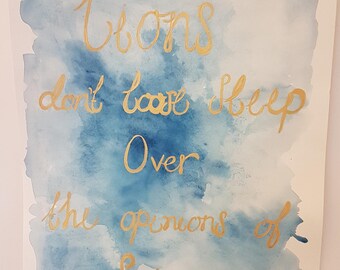 Lions
don't loose sleep
Over
the opinions of